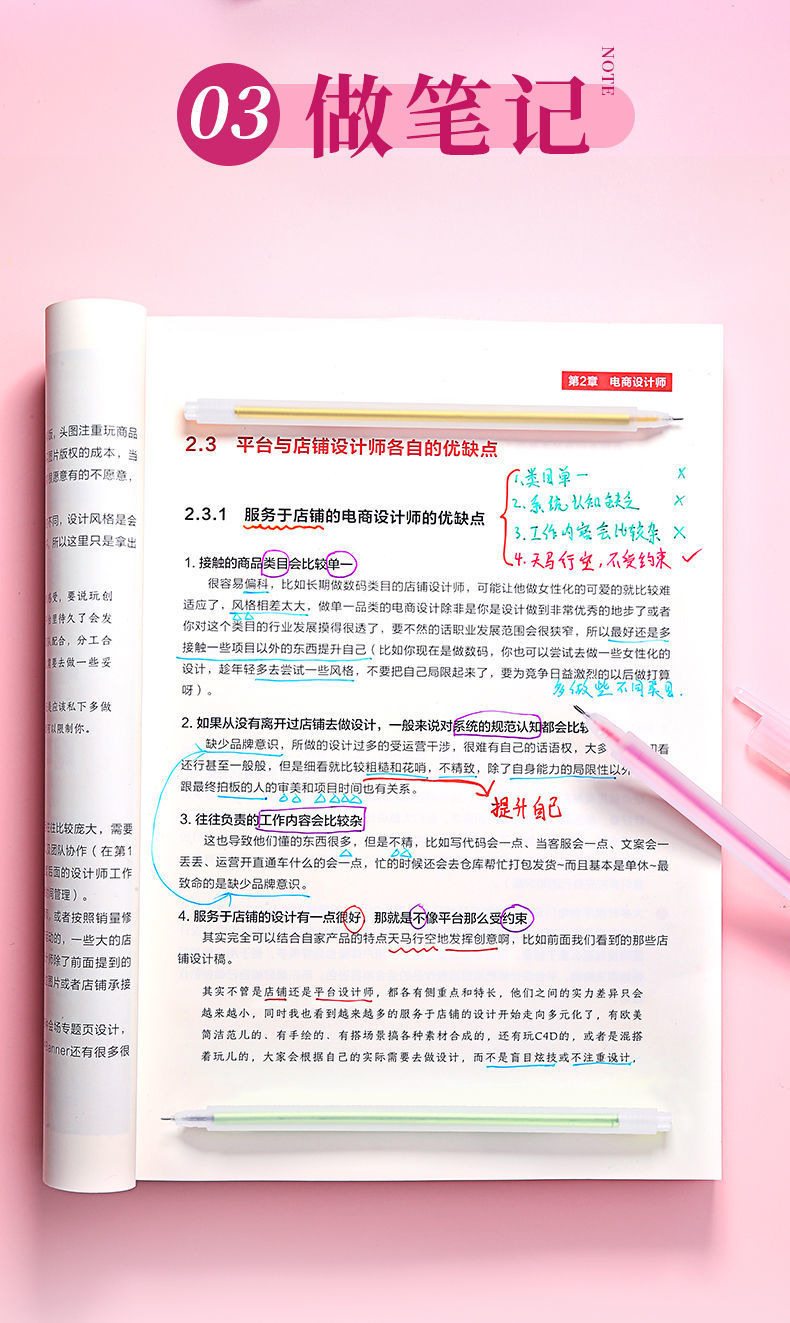 03 做笔记
NOTE
第2章 电商设计师
2.3 平台与店铺设计师各自的优缺点
1.类目单一 ×
2.系统认知缺乏 ×
3.工作内容会比较杂 ×
4.天马行空,不受约束 ✓
2.3.1 服务于店铺的电商设计师的优缺点
1. 接触的商品类目会比较单一
很容易偏科，比如长期做数码类目的店铺设计师，可能让他做女性化的可爱的就比较难
适应了，风格相差太大，做单一品类的电商设计除非是你是设计做到非常优秀的地步了或者
你对这个类目的行业发展摸得很透了，要不然的话职业发展范围会很狭窄，所以最好还是多
接触一些项目以外的东西提升自己（比如你现在是做数码，你也可以尝试去做一些女性化的
设计，趁年轻多去尝试一些风格，不要把自己局限起来了，要为竞争日益激烈的以后做打算
呀）。
多做些不同类目.
2. 如果从没有离开过店铺去做设计，一般来说对系统的规范认知都会比
缺少品牌意识，所做的设计过多的受运营干涉，很难有自己的话语权，大多
看
还行甚至一般般，但是细看就比较粗糙和花哨，不精致，除了自身能力的局限性以
跟最终拍板的人的审美和项目时间也有关系。
提升自己
3. 往往负责的工作内容会比较杂
这也导致他们懂的东西很多，但是不精，比如写代码会一点、当客服会一点、文案会一
丢丢、运营开直通车什么的会一点，忙的时候还会去仓库帮忙打包发货~而且基本是单休~最
致命的是缺少品牌意识。
4. 服务于店铺的设计有一点很好 那就是不像平台那么受约束
其实完全可以结合自家产品的特点天马行空地发挥创意啊，比如前面我们看到的那些店
铺设计稿。
其实不管是店铺还是平台设计师，都各有侧重点和特长，他们之间的实力差异只会
越来越小，同时我也看到越来越多的服务于店铺的设计开始走向多元化了，有欧美
简洁范儿的、有手绘的、有搭场景搞各种素材合成的，还有玩C4D的，或者是混搭
着玩儿的，大家会根据自己的实际需要去做设计，而不是盲目炫技或不注重设计，
头图注重玩商品
图片版权的成本，当
愿意有的不愿意，
不同，设计风格是会
所以这里只是拿出
要说玩创
里待久了会发
配合，分工合
需要去做一些妥
是应该私下多做
可以限制你。
往往比较庞大，需要
团队协作（在第1
后面的设计师工作
时间管理）。
或者按照销量修
动的，一些大的店
师除了前面提到的
图片或者店铺承接
会场专题页设计，
Banner还有很多很